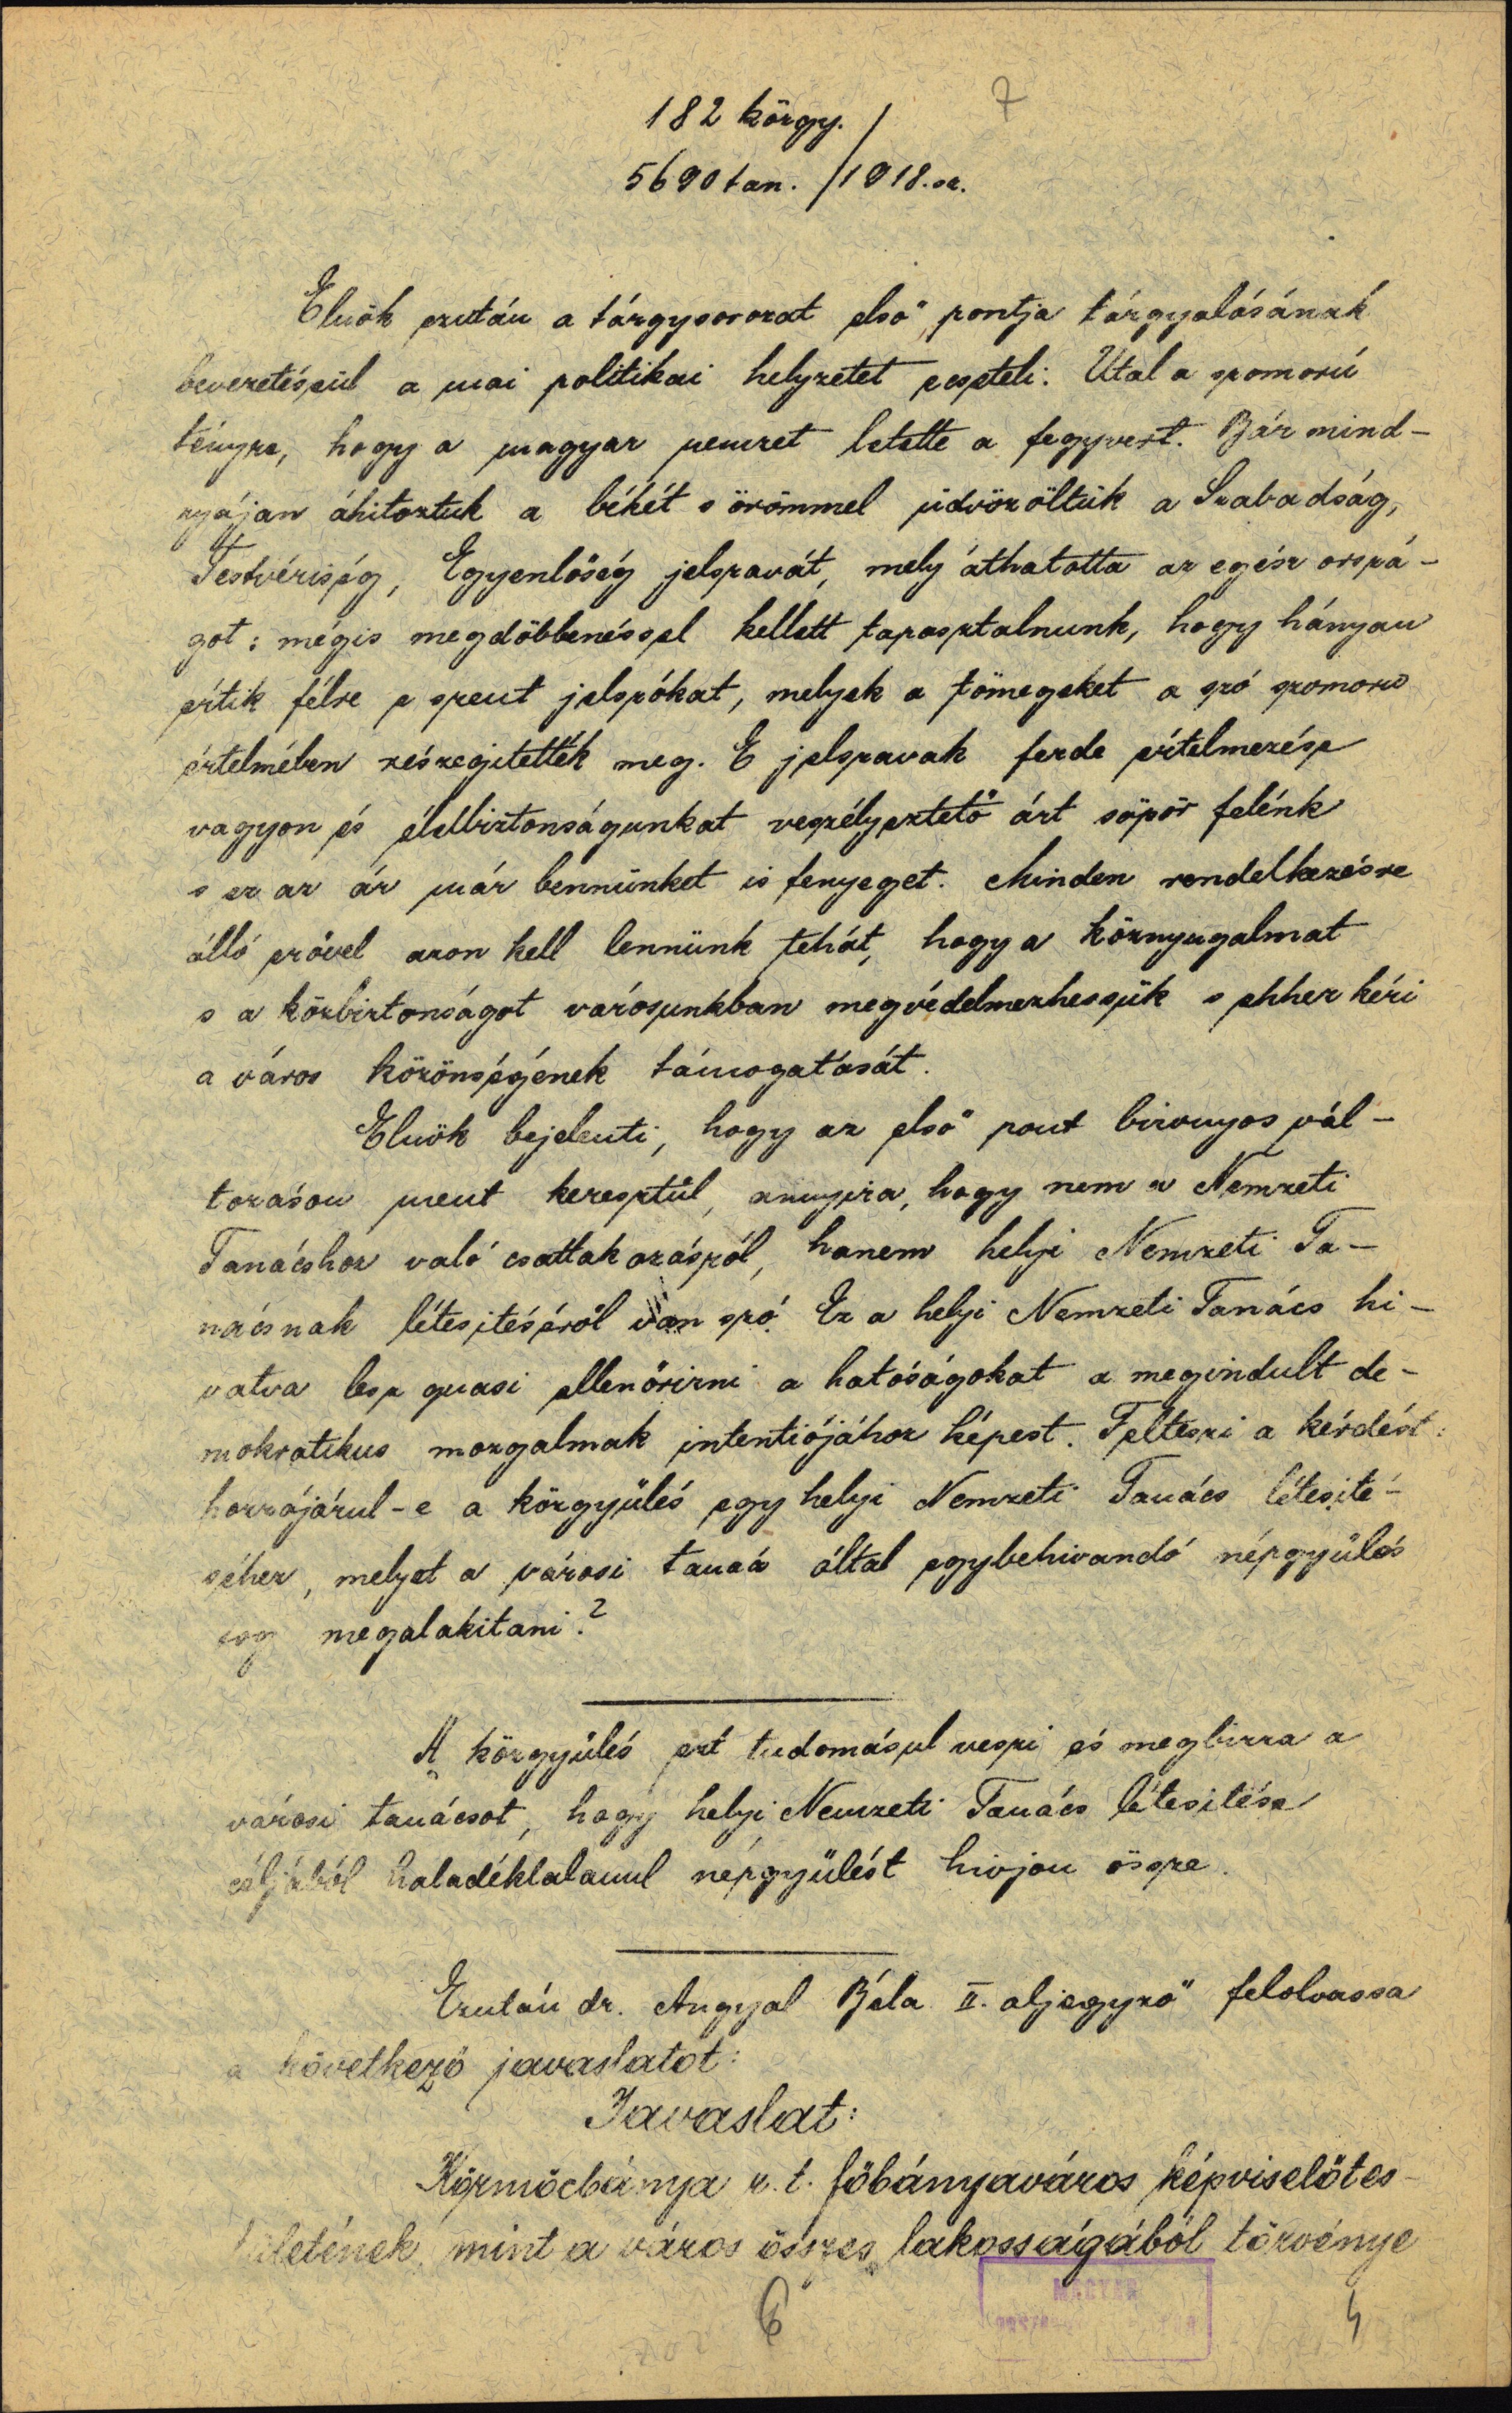 7
182 közgy. /
5690 tan. / 1918. sz.
Elnök ezután a tárgysorozat első pontja tárgyalásának
bevezetéseül a mai politikai helyzetet ecseteli. Utal a szomorú
tényre, hogy a magyar nemzet letette a fegyvert. Bár mind-
nyájan áhitoztuk a békét s örömmel üdvözöltük a Szabadság,
Testvériség, Egyenlőség jelszavát, mely áthatotta az egész orszá-
got: mégis megdöbbenéssel kellett tapasztalnunk, hogy hányan
értik félre e szent jelszókat, melyek a tömegeket a szó szomorú
értelmében részegitették meg. E jelszavak ferde értelmezése
vagyon és életbiztonságunkat veszélyeztető árt söpör felénk
s ez az ár már bennünket is fenyeget. Minden rendelkezésre
álló erővel azon kell lennünk tehát, hogy a köznyugalmat
s a közbiztonságot városunkban megvédelmezhessük s ehhez kéri
a város közönségének támogatását.
Elnök bejelenti, hogy az első pont bizonyos vál-
tozáson ment keresztül, annyira, hogy nem a Nemzeti
Tanácshoz való csatlakozásról, hanem helyi Nemzeti Ta-
nácsnak létesitéséről van szó. Ez a helyi Nemzeti Tanács hi-
vatva lesz quasi ellenőrizni a hatóságokat a megindult de-
mokratikus mozgalmak intentiójához képest. Felteszi a kérdést:
hozzájárul-e a közgyülés egy helyi Nemzeti Tanács létesité-
séhez, melyet a városi tanács által egybehivandó népgyülés
fog megalakitani?
A közgyülés ezt tudomásul veszi és megbizza a
városi tanácsot, hogy helyi Nemzeti Tanács létesitése
céljából haladéktalanul népgyülést hivjon össze.
Ezután dr. Angyal Béla II. aljegyző felolvassa
a következő javaslatot:
Javaslat:
Körmöcbánya r. t. főbányaváros képviselőtes-
tületének, mint a város összes lakosságából törvénye
6
MAGYAR
4